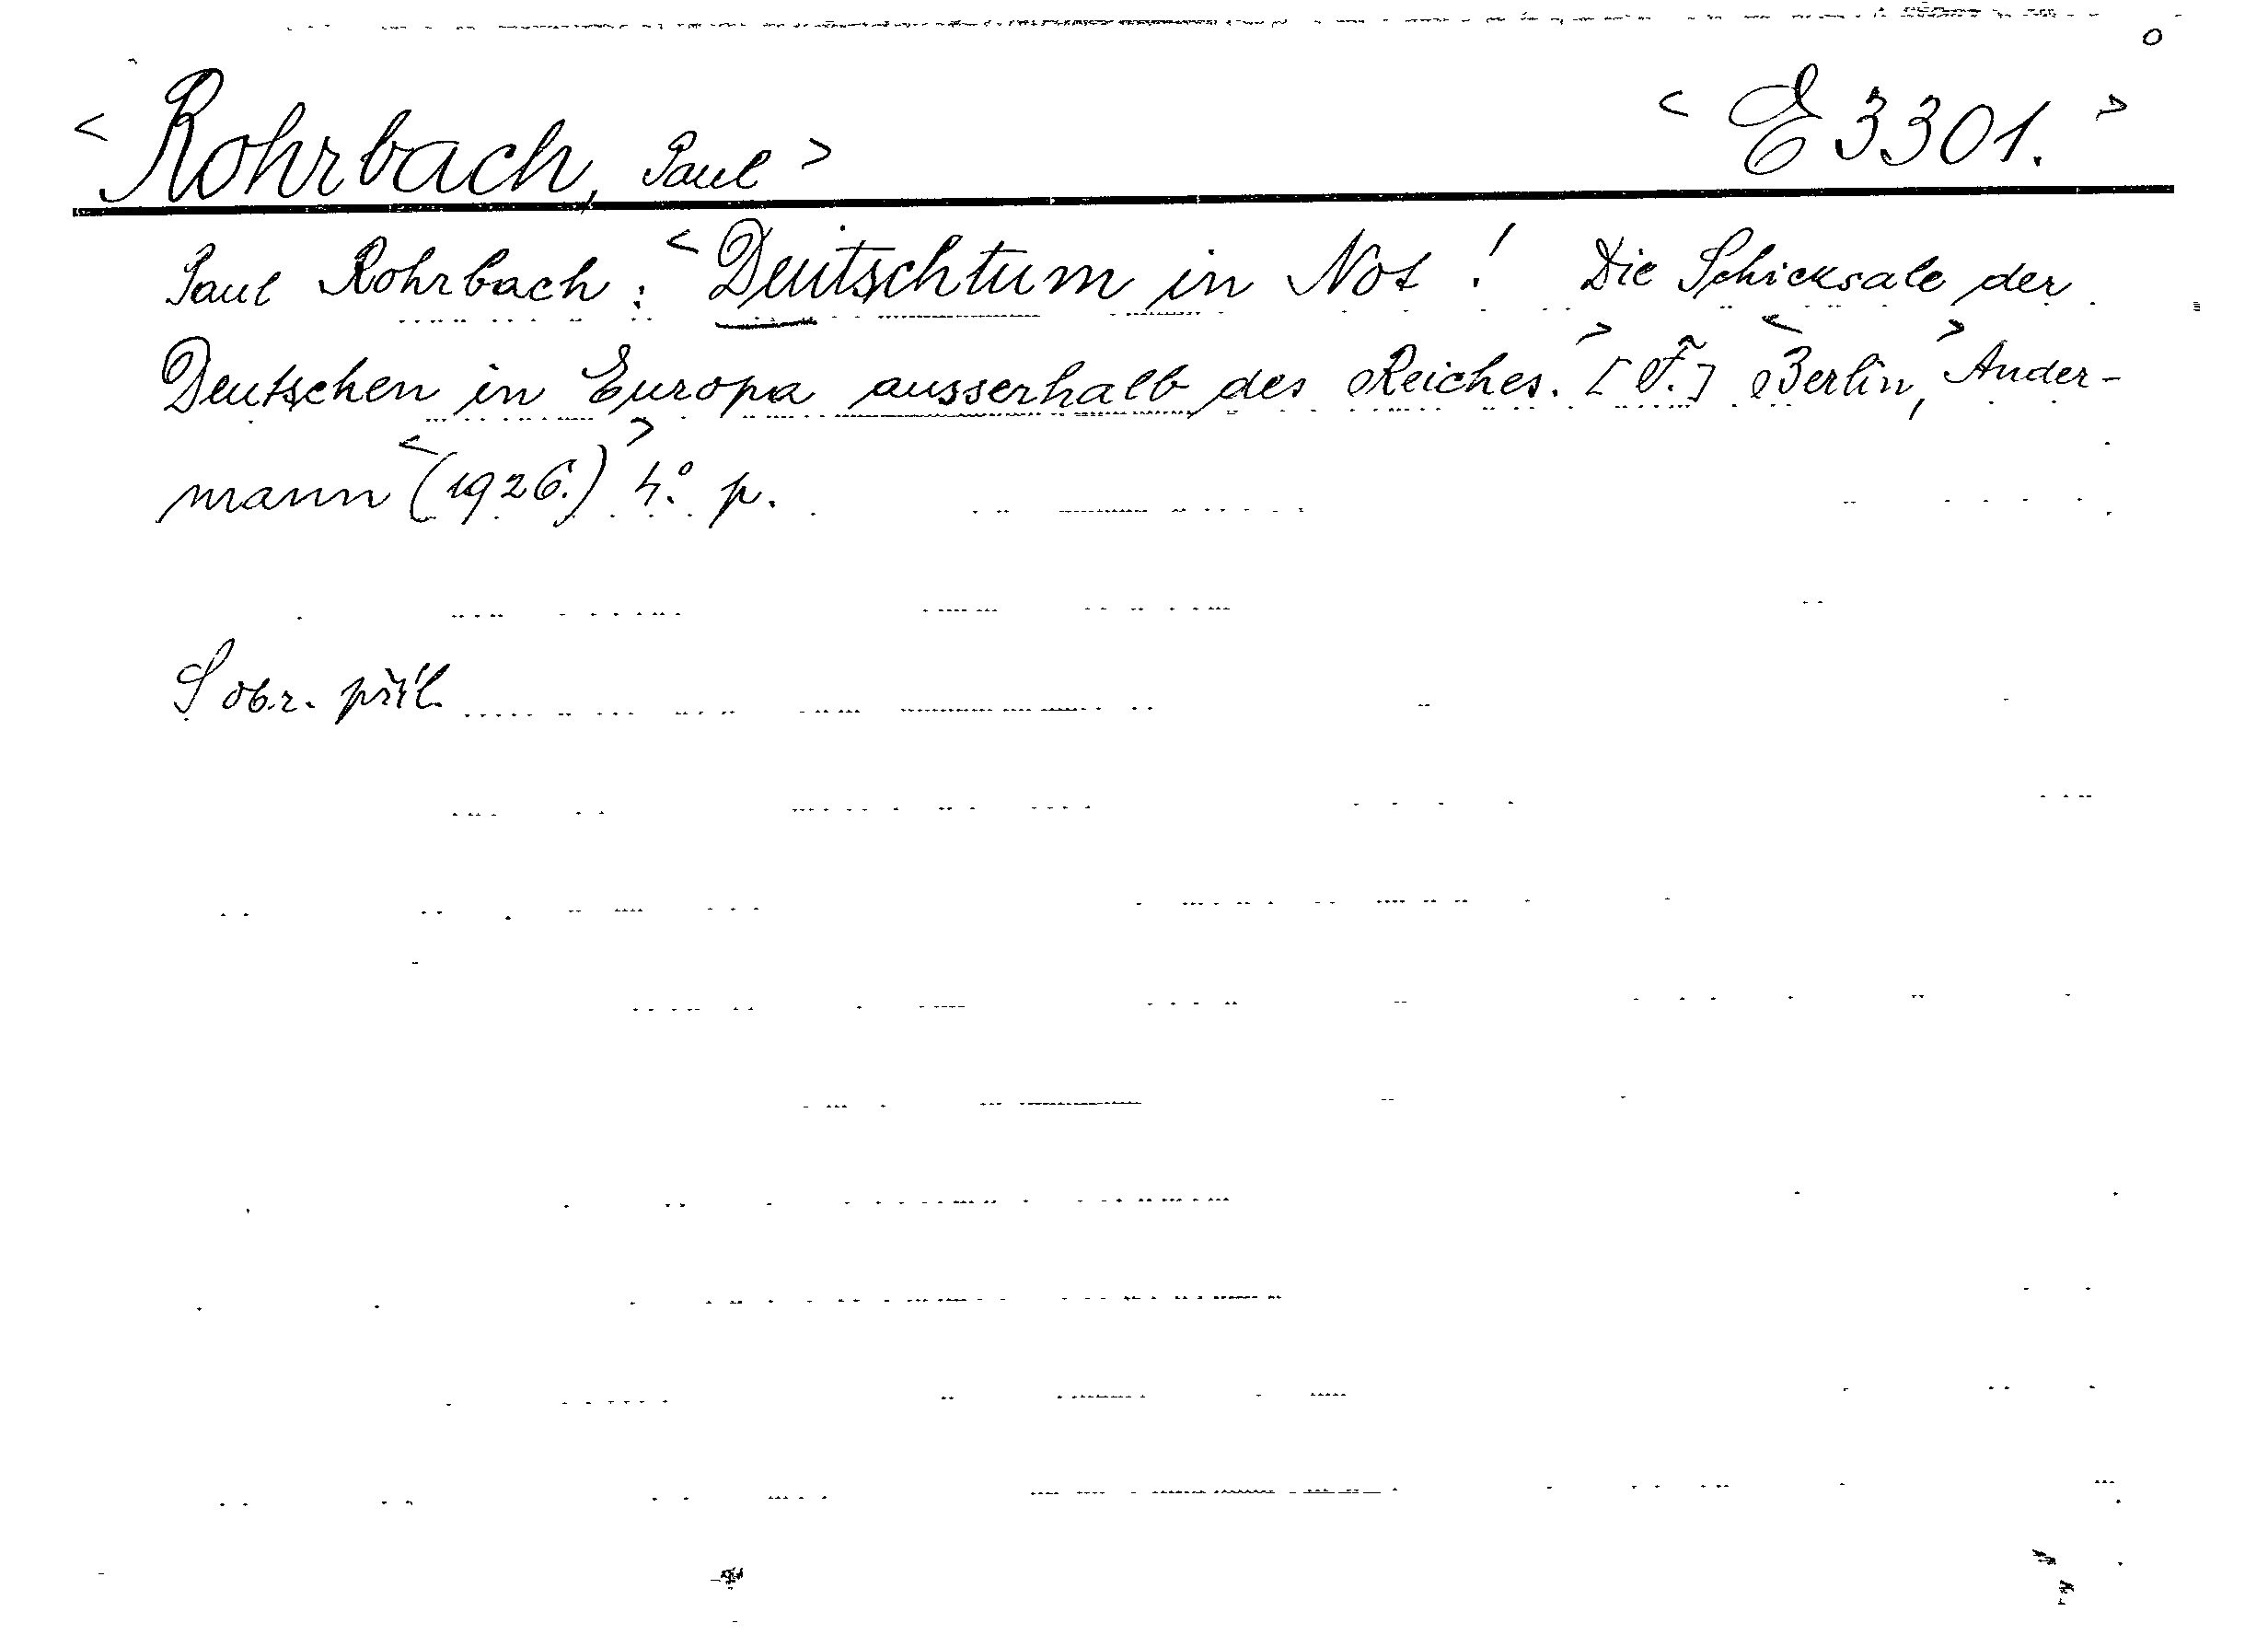 < Rohrbach, Paul > < E 3301. >
Paul Rohrbach: < Deutschtum in Not! Die Schicksale der
Deutschen in Europa ausserhalb des Reiches. > [F.] < Berlin, > Ander-
mann < (1926.) > 4.° p.
S obr. příl.